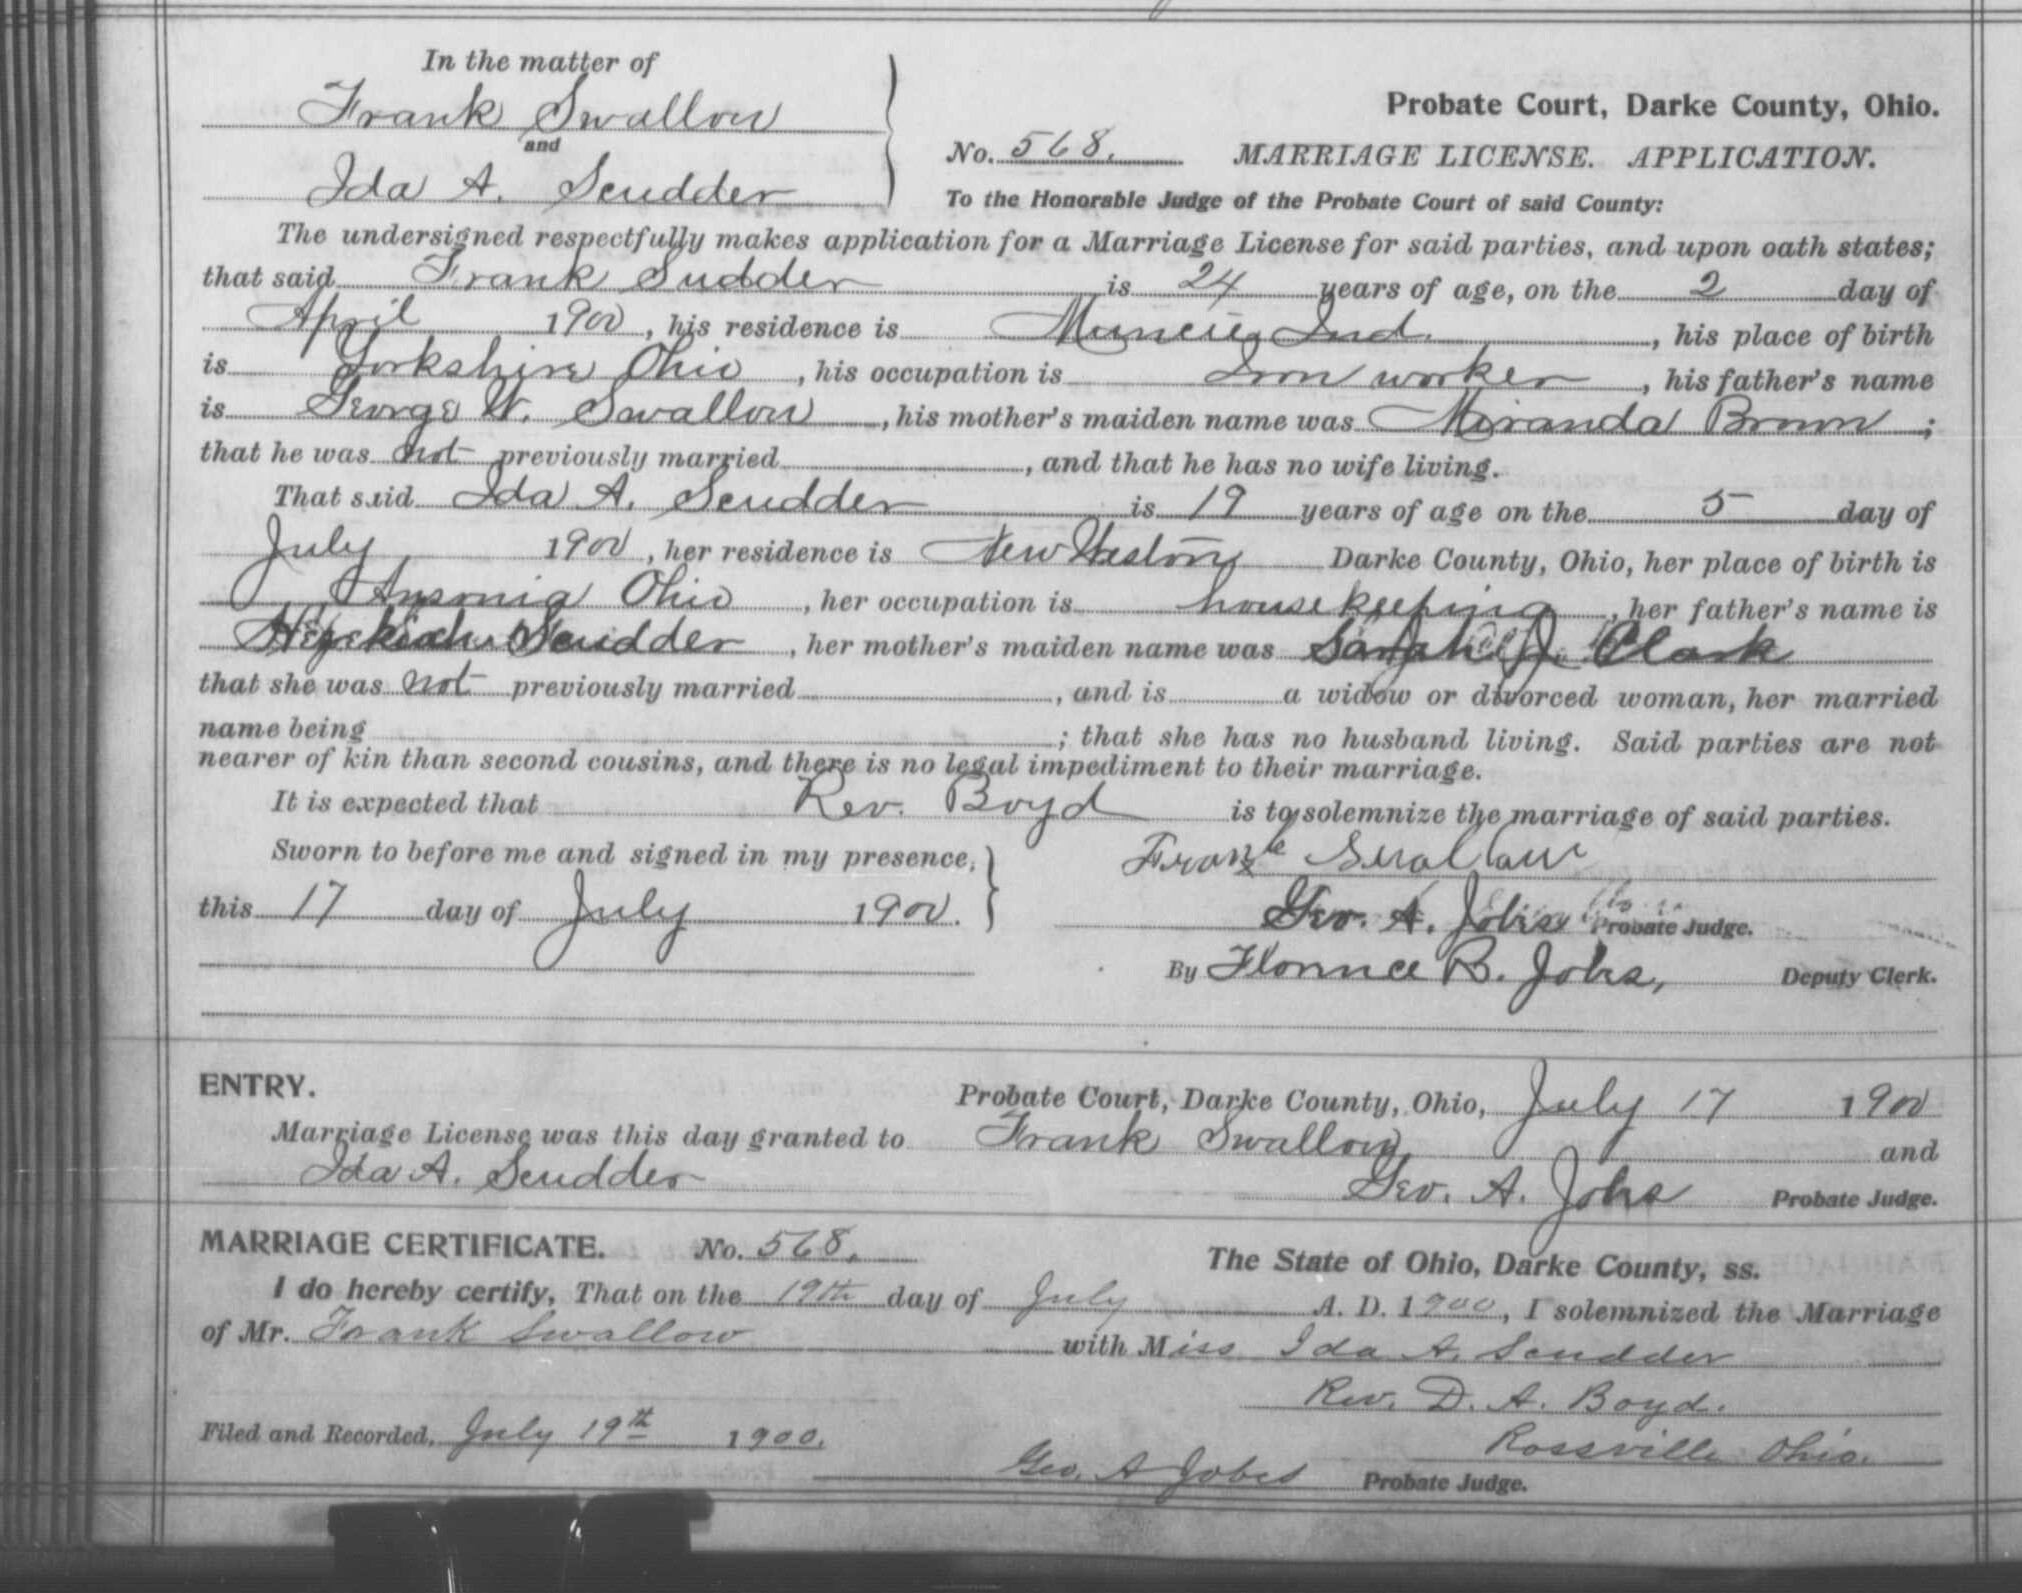 In the matter of
Frank Swallow
and
Ida A. Scudder
Probate Court, Darke County, Ohio.
No. 568. MARRIAGE LICENSE. APPLICATION.
To the Honorable Judge of the Probate Court of said County:
The undersigned respectfully makes application for a Marriage License for said parties, and upon oath states;
that said Frank Sudder is 24 years of age, on the 2 day of
April 1900, his residence is Muncie Ind. , his place of birth
is Yorkshire Ohio , his occupation is Iron worker , his father's name
is George W. Swallow , his mother's maiden name was Miranda Brown ;
that he was not previously married , and that he has no wife living.
That said Ida A. Scudder is 19 years of age on the 5 day of
July 1900, her residence is New Weston Darke County, Ohio, her place of birth is
Ansonia Ohio , her occupation is housekeeping , her father's name is
Hezekiah Scudder , her mother's maiden name was Sarah J. Clark
that she was not previously married , and is a widow or divorced woman, her married
name being ; that she has no husband living. Said parties are not
nearer of kin than second cousins, and there is no legal impediment to their marriage.
It is expected that Rev. Boyd is to solemnize the marriage of said parties.
Sworn to before me and signed in my presence, Frank Swallow
this 17 day of July 1900. Geo. A. Jobes Probate Judge.
By Florence B. Jobes, Deputy Clerk.
ENTRY. Probate Court, Darke County, Ohio, July 17 1900
Marriage License was this day granted to Frank Swallow and
Ida A. Scudder Geo. A. Jobes Probate Judge.
MARRIAGE CERTIFICATE. No. 568. The State of Ohio, Darke County, ss.
I do hereby certify, That on the 19th day of July A. D. 1900, I solemnized the Marriage
of Mr. Frank Swallow with Miss Ida A. Scudder
Rev. D. A. Boyd.
Rossville Ohio.
Filed and Recorded, July 19th 1900. Geo. A Jobes Probate Judge.